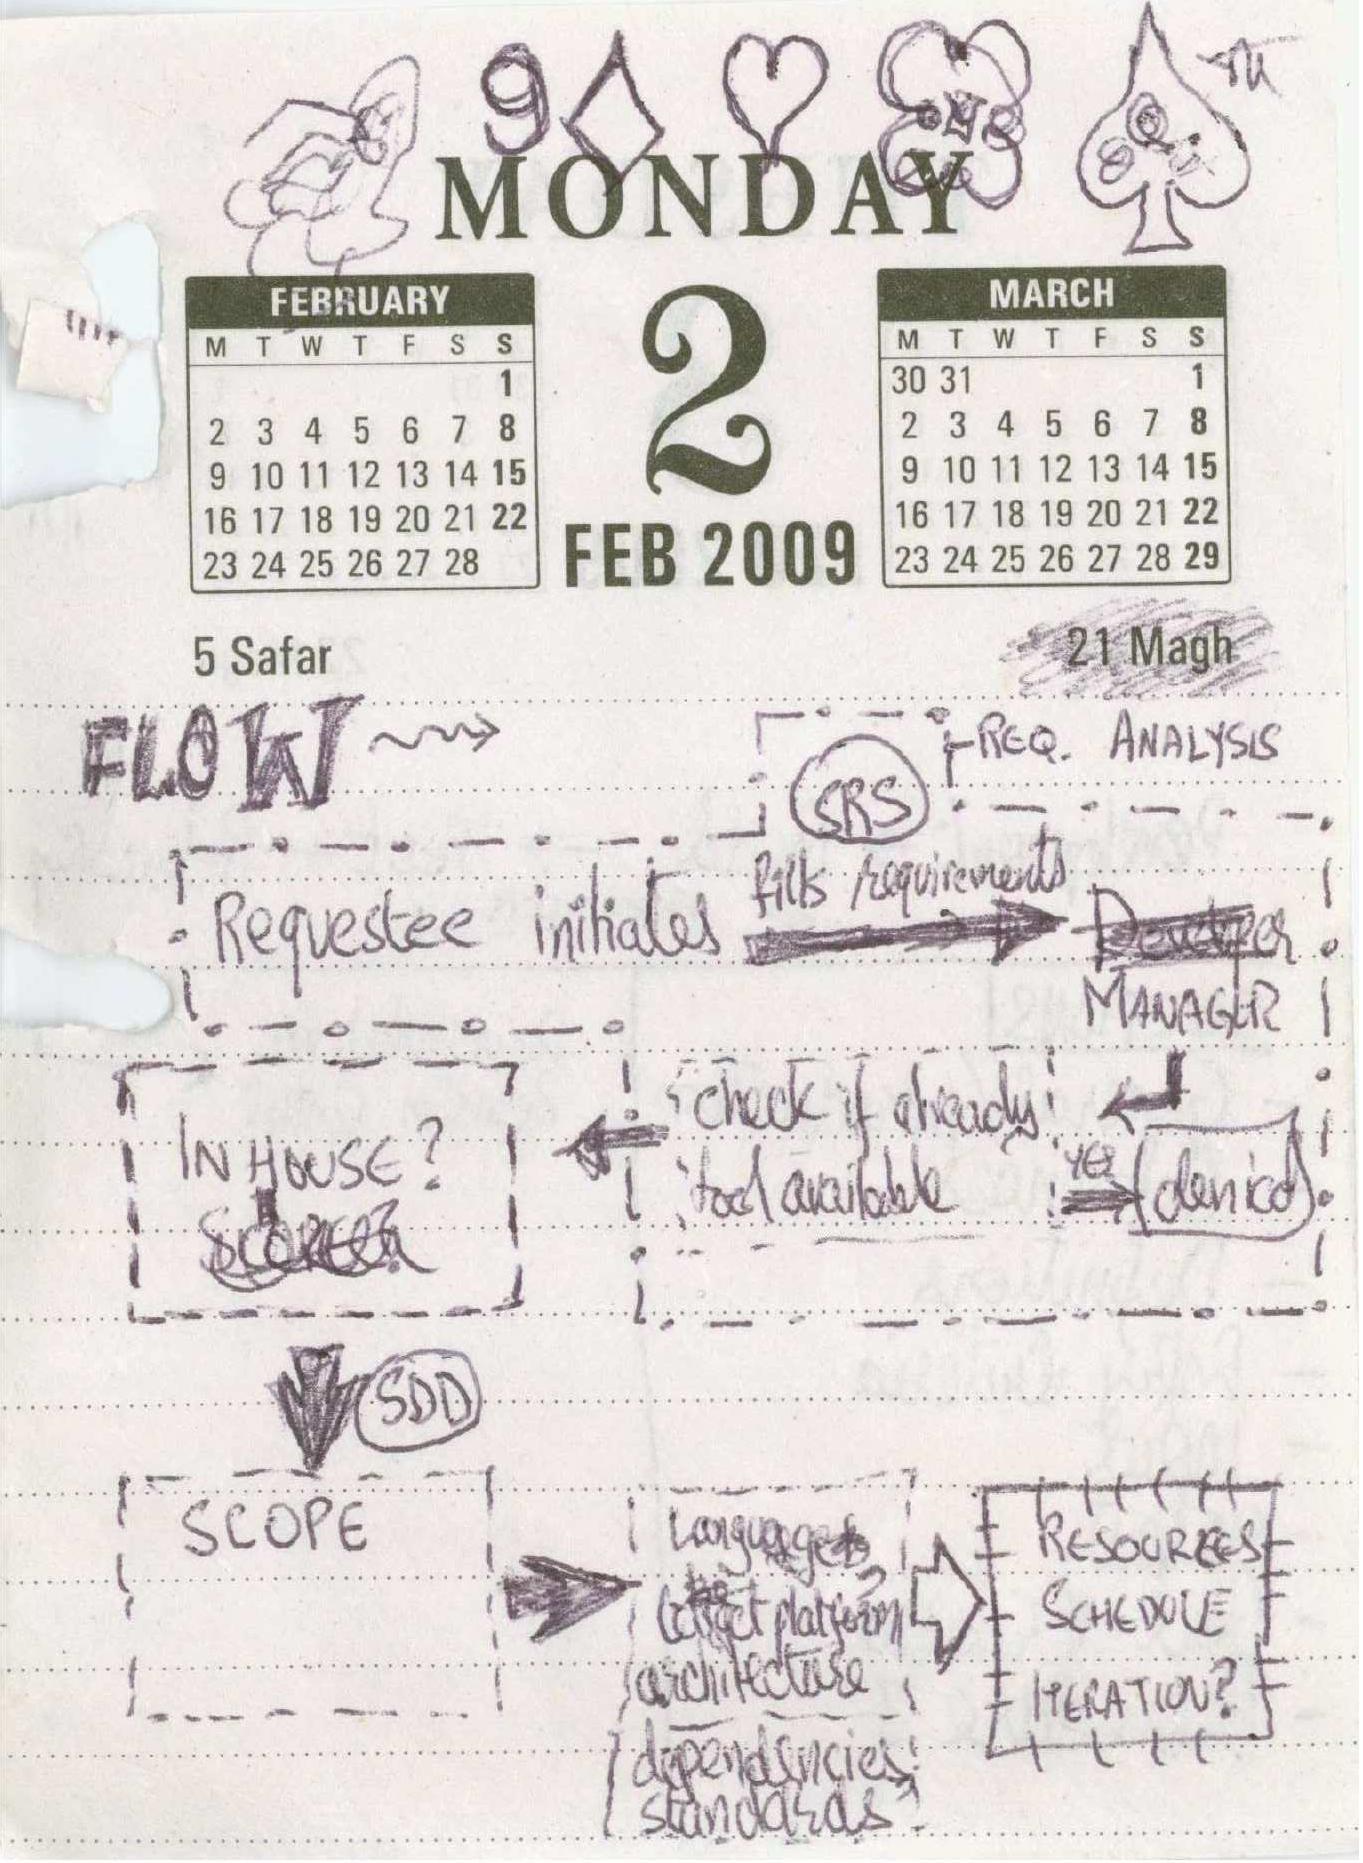 9
MONDAY
FEBRUARY
M T W T F S S
1
2 3 4 5 6 7 8
9 10 11 12 13 14 15
16 17 18 19 20 21 22
23 24 25 26 27 28
2
FEB 2009
MARCH
M T W T F S S
30 31 1
2 3 4 5 6 7 8
9 10 11 12 13 14 15
16 17 18 19 20 21 22
23 24 25 26 27 28 29
5 Safar
21 Magh
FLOW
REQ. ANALYSIS
SRS
fills requirements
Requestee initiates
Developer
MANAGER
check if already
tool available
YES
denied
IN HOUSE?
SCOPE?
SDD
SCOPE
Languages
target platform
architecture
dependencies
standards
RESOURCES
SCHEDULE
ITERATION?